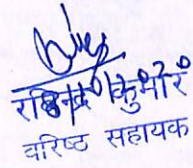 रविन्द्र कुमार
वरिष्ठ सहायक